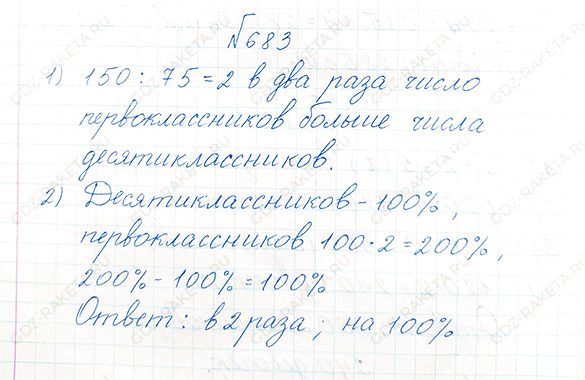 №683
1) 150 : 75 = 2 в два раза число
первоклассников больше числа
десятиклассников.
2) Десятиклассников - 100%,
первоклассников 100 · 2 = 200%,
200% - 100% = 100%
Ответ: в 2 раза; на 100%